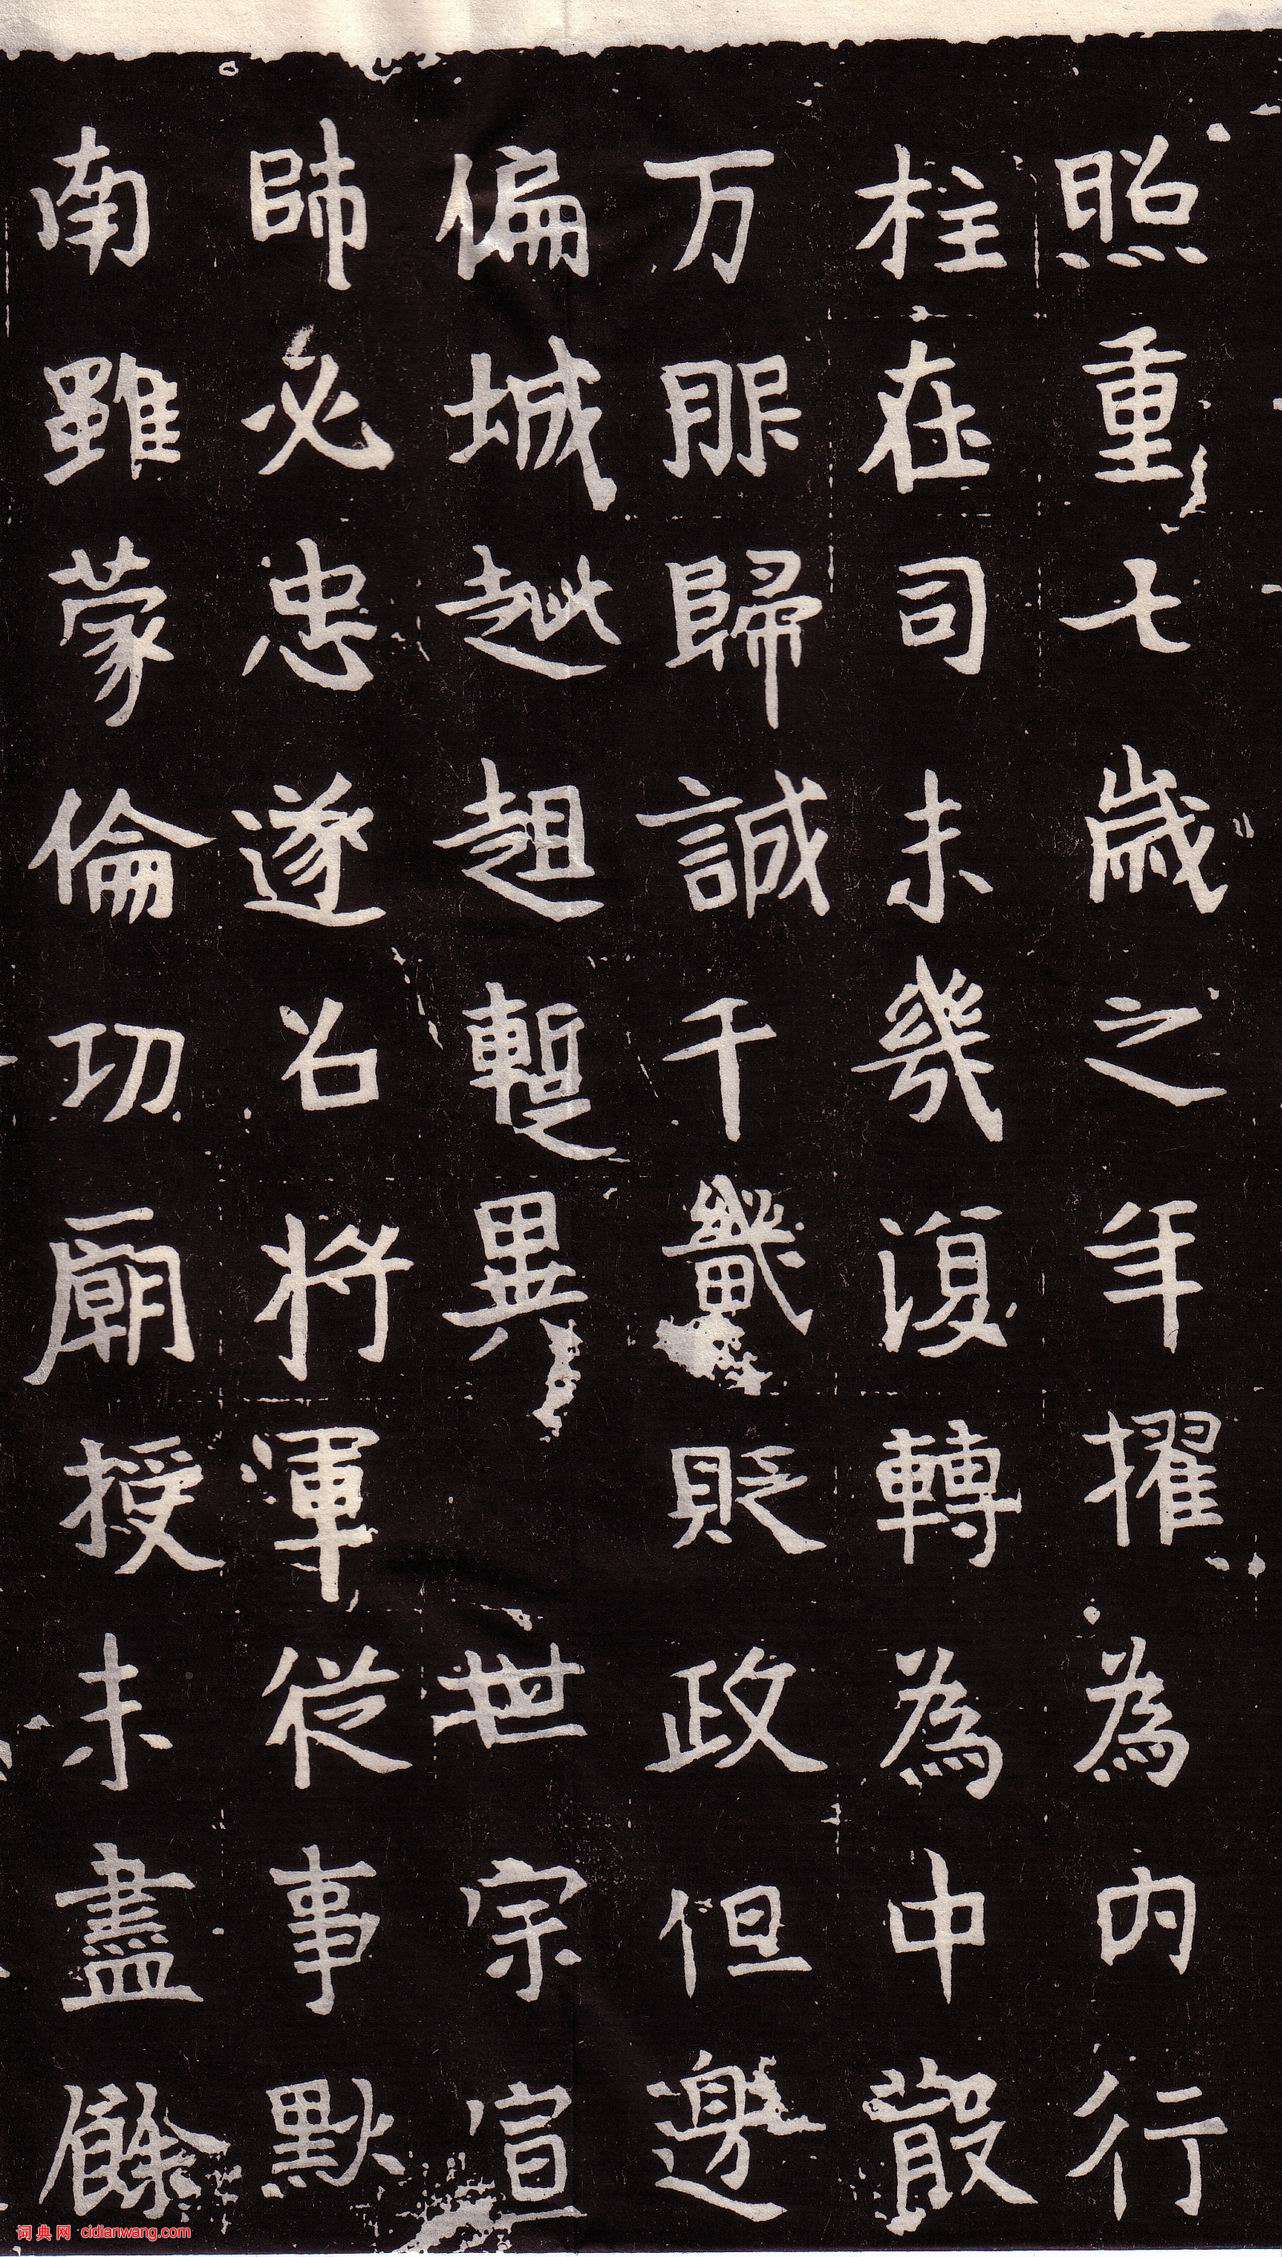 照重七歲之年擢為内行
柱在司未幾復轉為中散
万邦歸誠千畿貶政但邊
偏城越趄蹔異世宗宣
師必忠遂召将軍從事默
南雖蒙倫功廟授未盡餘
词典网 cidianwang.com